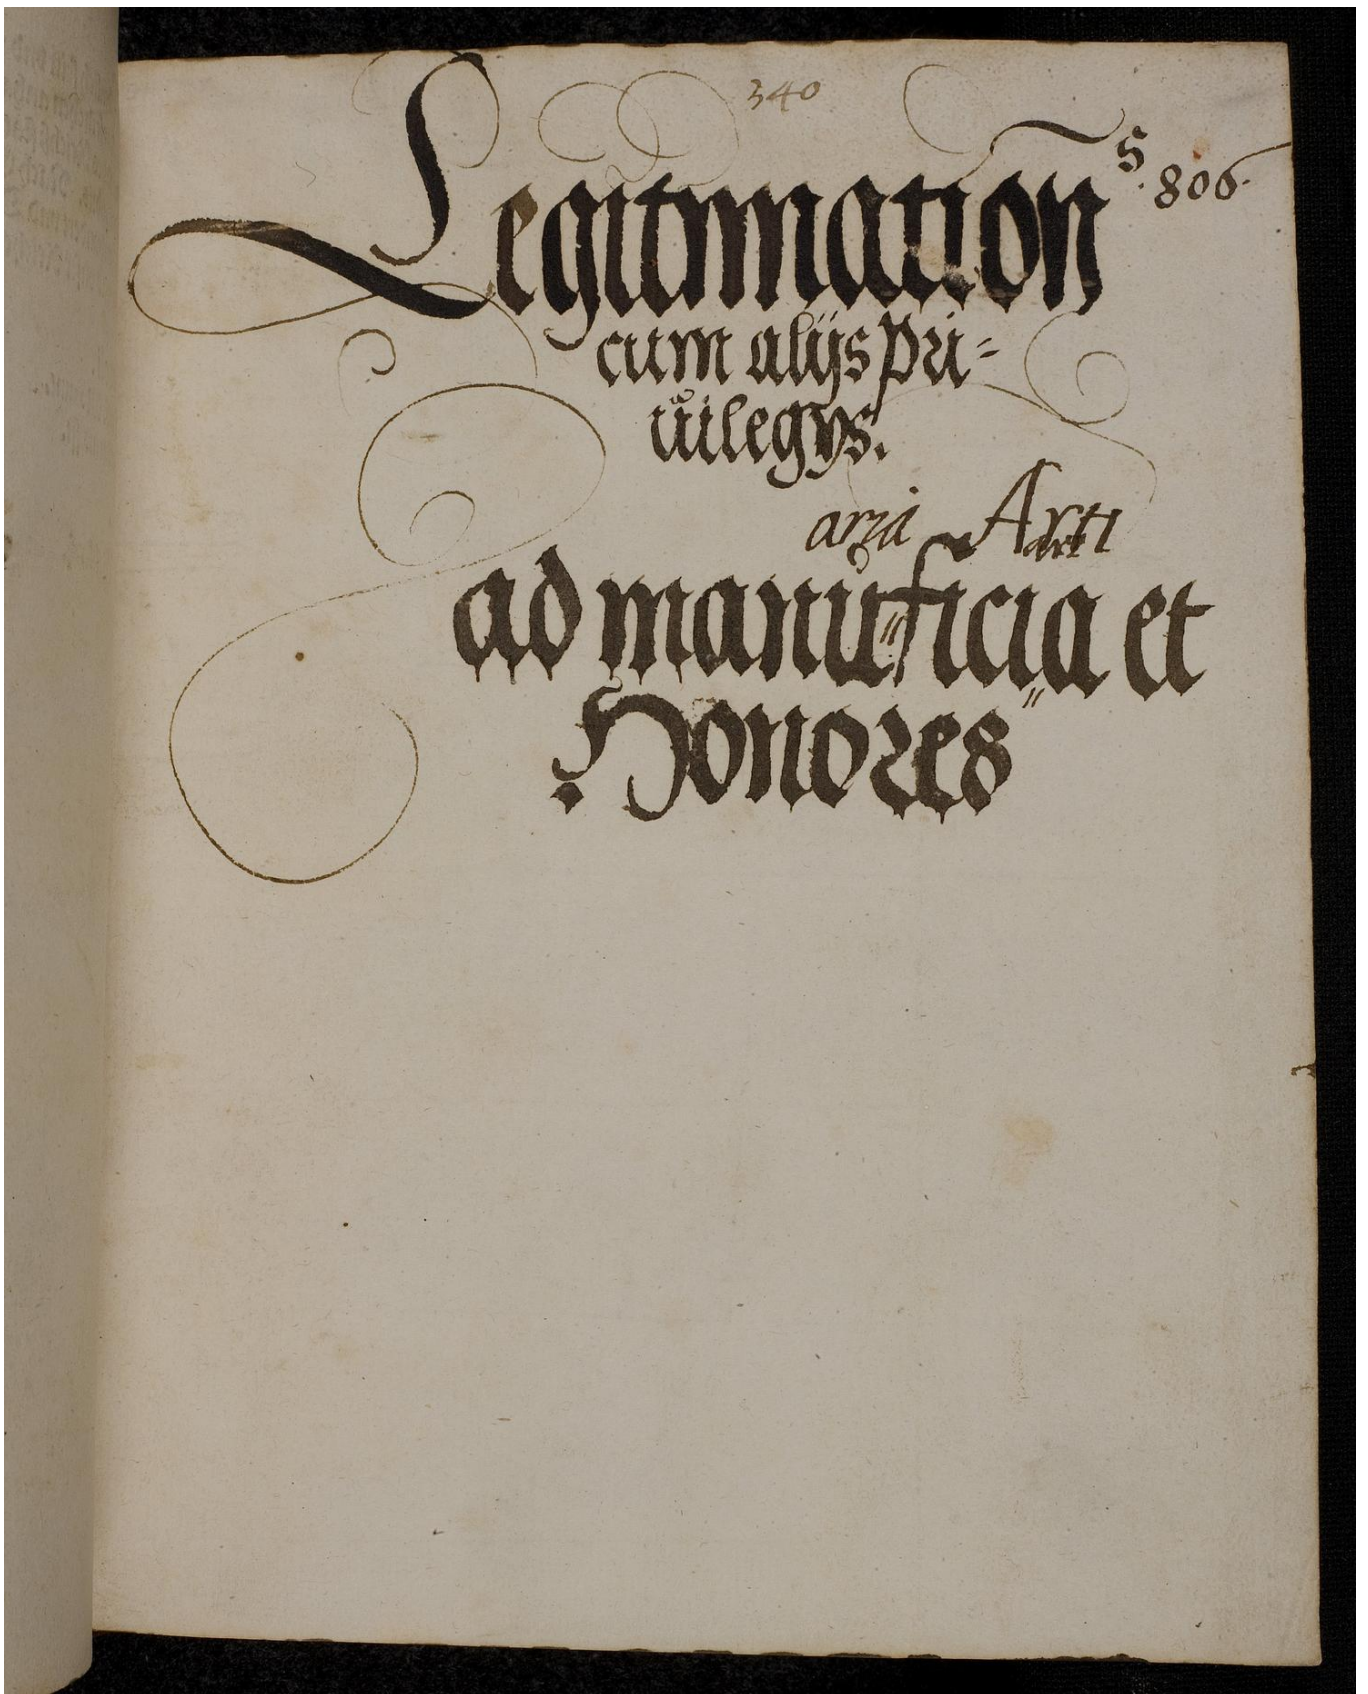 340
Legitimation S. 806.
cum alijs Pri=
uilegijs.
aria Arti
ad manuficia et
Honores